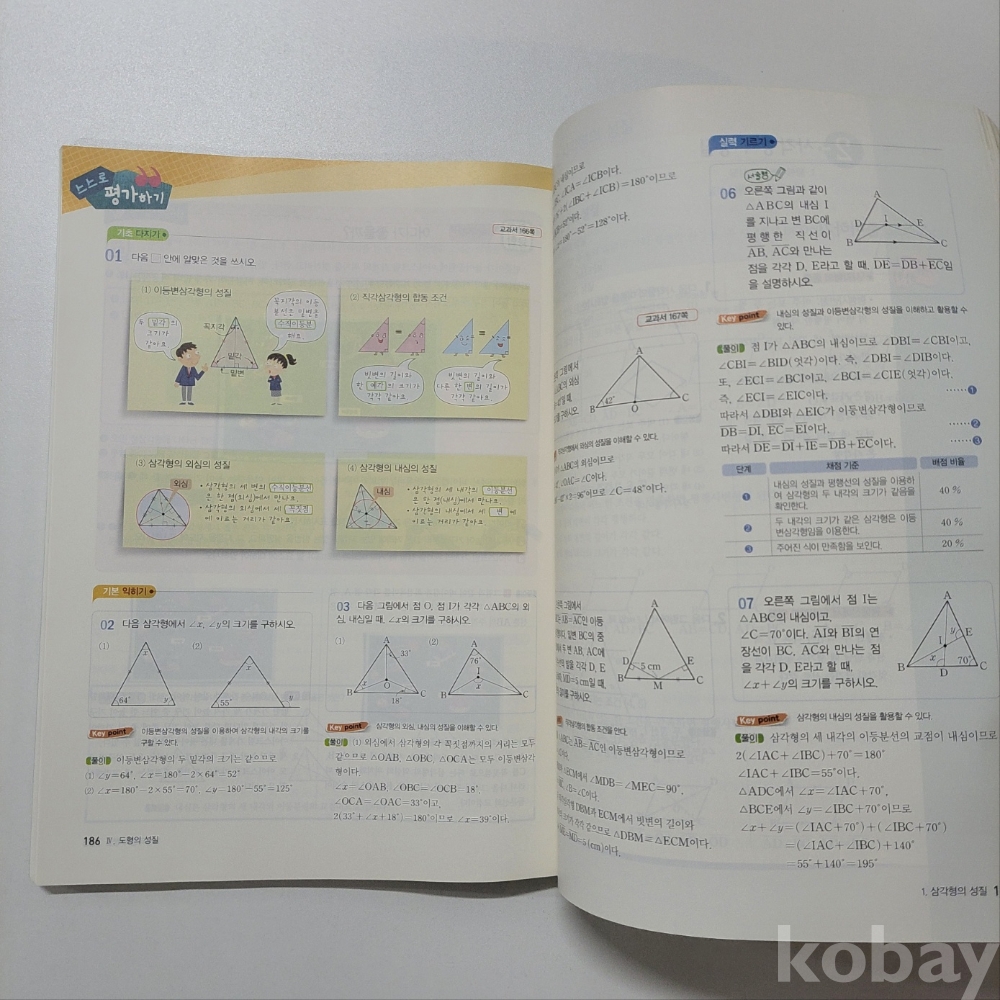 스스로
평가하기
기초 다지기
교과서 166쪽
01 다음 □ 안에 알맞은 것을 쓰시오.
(1) 이등변삼각형의 성질
두 밑각의
크기가
같아요.
꼭지각
밑각
밑변
꼭지각의 이등
분선은 밑변을
수직이등분
해요.
(2) 직각삼각형의 합동 조건
빗변의 길이와
한 예각의 크기가
각각 같아요.
빗변의 길이와
다른 한 변의 길이가
각각 같아요.
(3) 삼각형의 외심의 성질
외심
• 삼각형의 세 변의 수직이등분선
은 한 점(외심)에서 만나요.
• 삼각형의 외심에서 세 꼭짓점
에 이르는 거리가 같아요.
(4) 삼각형의 내심의 성질
내심
• 삼각형의 세 내각의 이등분선
은 한 점(내심)에서 만나요.
• 삼각형의 내심에서 세 변에
이르는 거리가 같아요.
기본 익히기
02 다음 삼각형에서 ∠x, ∠y의 크기를 구하시오.
(1) (2)
x
64° y
x
55° y
Key point 이등변삼각형의 성질을 이용하여 삼각형의 내각의 크기를
구할 수 있다.
풀이 이등변삼각형의 두 밑각의 크기는 같으므로
(1) ∠y=64°, ∠x=180°-2×64°=52°
(2) ∠x=180°-2×55°=70°, ∠y=180°-55°=125°
03 다음 그림에서 점 O, 점 I가 각각 △ABC의 외
심, 내심일 때, ∠x의 크기를 구하시오.
(1) (2)
A 33° x O B 18° C
A 76° I x B C
Key point 삼각형의 외심, 내심의 성질을 이해할 수 있다.
풀이 (1) 외심에서 삼각형의 각 꼭짓점까지의 거리는 모두
같으므로 △OAB, △OBC, △OCA는 모두 이등변삼각
형이다.
∠x=∠OAB, ∠OBC=∠OCB=18°,
∠OCA=∠OAC=33°이고,
2(33°+∠x+18°)=180°이므로 ∠x=39°이다.
186 Ⅳ. 도형의 성질
∠ICA=∠ICB이다.
∠IBC+∠ICB)=180°이므로
180°-52°=128°이다.
교과서 167쪽
A
B 42° O C
의 성질을 이해할 수 있다.
ABC의 외심이므로
∠OAC=∠C이다.
=96°이므로 ∠C=48°이다.
AB=AC인 이등
변 BC의 중
두 변 AB, AC에
발을 각각 D, E
MD=5 cm일 때,
길이를 구하시오.
A
D 5 cm E
B M C
합동 조건을 안다.
AB=AC인 이등변삼각형이므로
ECM에서 ∠MDB=∠MEC=90°,
∠B=∠C이다.
DBM과 ECM에서 빗변의 길이와
같으므로 △DBM≡△ECM이다.
=MD=5(cm)이다.
실력 기르기
서술형
06 오른쪽 그림과 같이
△ABC의 내심 I
를 지나고 변 BC에
평행한 직선이
AB, AC와 만나는
점을 각각 D, E라고 할 때, DE=DB+EC임
을 설명하시오.
A
D I E
B C
Key point 내심의 성질과 이등변삼각형의 성질을 이해하고 활용할 수
있다.
풀이 점 I가 △ABC의 내심이므로 ∠DBI=∠CBI이고,
∠CBI=∠BID(엇각)이다. 즉, ∠DBI=∠DIB이다.
또, ∠ECI=∠BCI이고, ∠BCI=∠CIE(엇각)이다.
즉, ∠ECI=∠EIC이다. ……❶
따라서 △DBI와 △EIC가 이등변삼각형이므로
DB=DI, EC=EI이다. ……❷
따라서 DE=DI+IE=DB+EC이다. ……❸
단계 채점 기준 배점 비율
❶ 내심의 성질과 평행선의 성질을 이용하
여 삼각형의 두 내각의 크기가 같음을
확인한다. 40 %
❷ 두 내각의 크기가 같은 삼각형은 이등
변삼각형임을 이용한다. 40 %
❸ 주어진 식이 만족함을 보인다. 20 %
07 오른쪽 그림에서 점 I는
△ABC의 내심이고,
∠C=70°이다. AI와 BI의 연
장선이 BC, AC와 만나는 점
을 각각 D, E라고 할 때,
∠x+∠y의 크기를 구하시오.
A
I y E
x 70°
B D C
Key point 삼각형의 내심의 성질을 활용할 수 있다.
풀이 삼각형의 세 내각의 이등분선의 교점이 내심이므로
2(∠IAC+∠IBC)+70°=180°
∠IAC+∠IBC=55°이다.
△ADC에서 ∠x=∠IAC+70°,
△BCE에서 ∠y=∠IBC+70°이므로
∠x+∠y=(∠IAC+70°)+(∠IBC+70°)
=(∠IAC+∠IBC)+140°
=55°+140°=195°
1. 삼각형의 성질 1
kobay